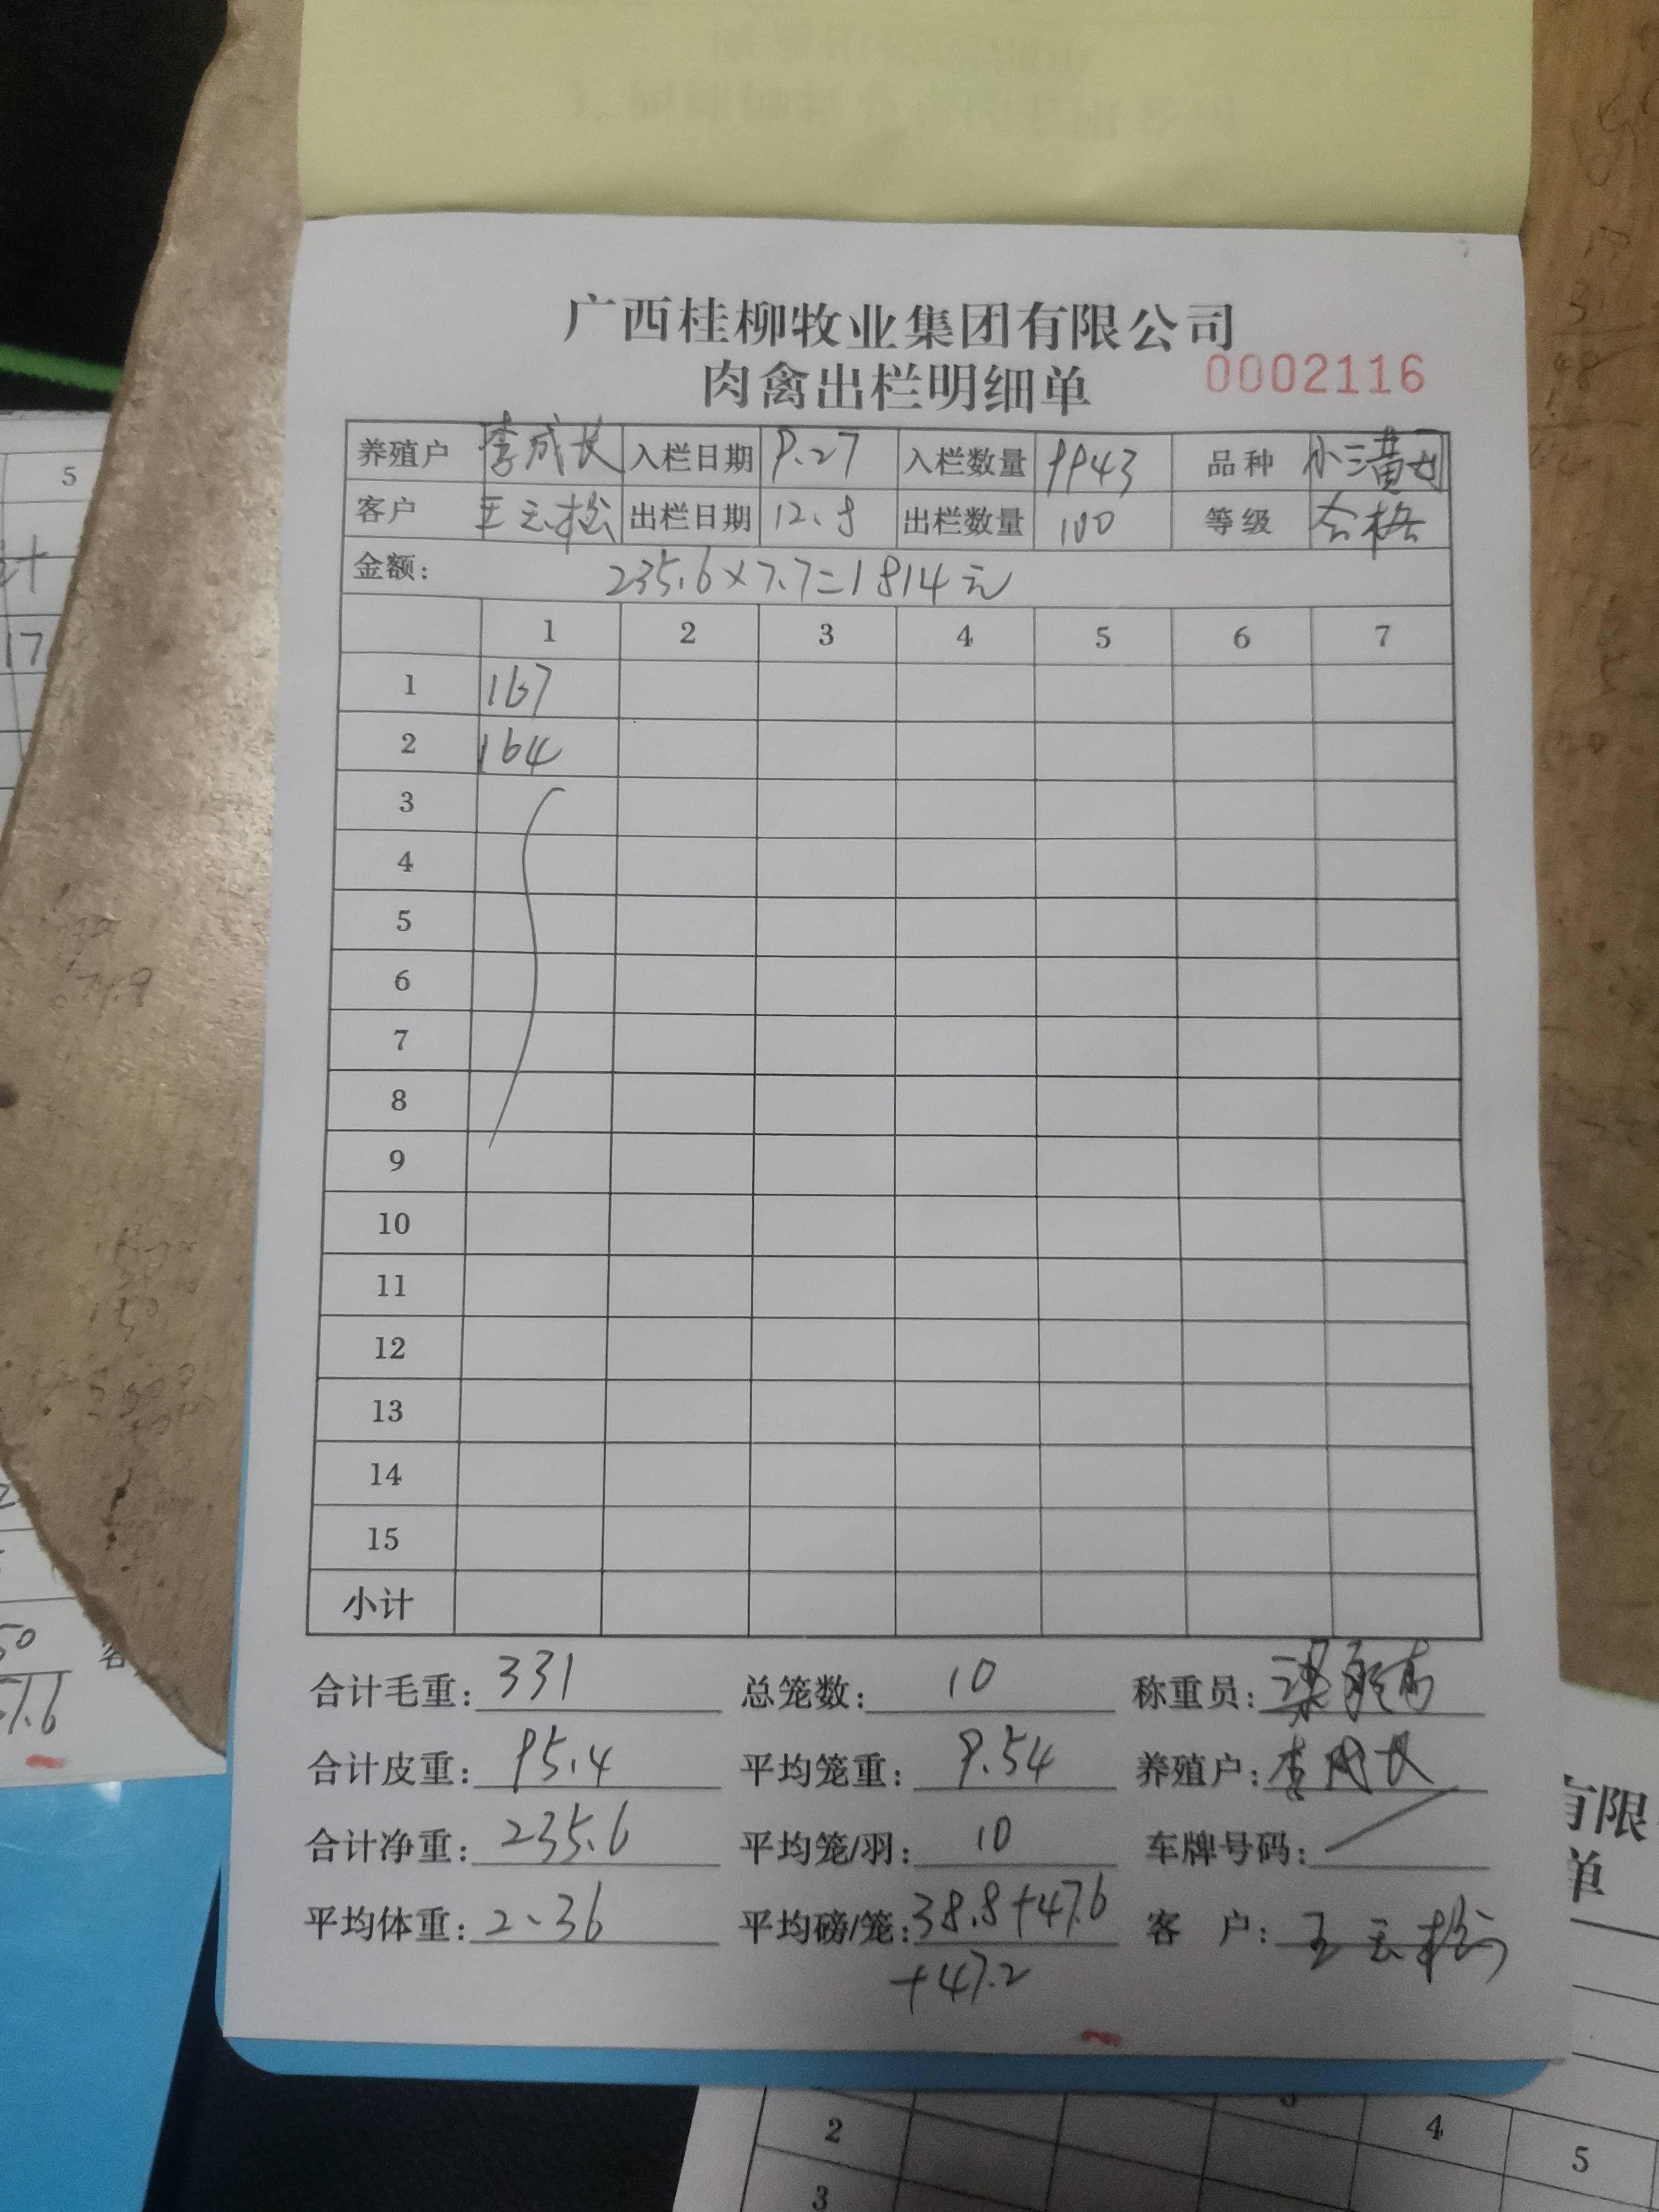 广西桂柳牧业集团有限公司
肉禽出栏明细单 0002116
养殖户 李成长 入栏日期 9.27 入栏数量 9943 品种
客户 王云松 出栏日期 12.8 出栏数量 100 等级 合格
金额: 235.6×7.7=1814元
1 2 3 4 5 6 7
1 167
2 164
3
4
5
6
7
8
9
10
11
12
13
14
15
小计
合计毛重: 331 总笼数: 10 称重员:
合计皮重: 95.4 平均笼重: 9.54 养殖户: 李成长
合计净重: 235.6 平均笼/羽: 10 车牌号码:
平均体重: 2.36 平均磅/笼: 38.8+47.6 客 户: 王云松
+47.2
5
17
有限
单
2 4 5
3